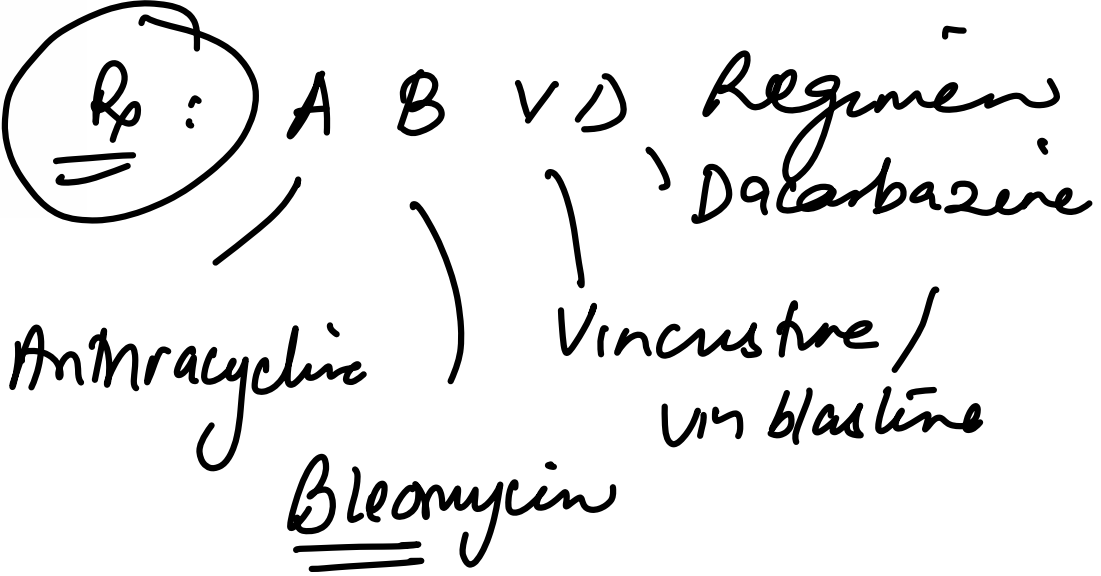 Rx : A B V D Regimen
Dacarbazine
Anthracyclin
Vincristine /
vinblastine
Bleomycin